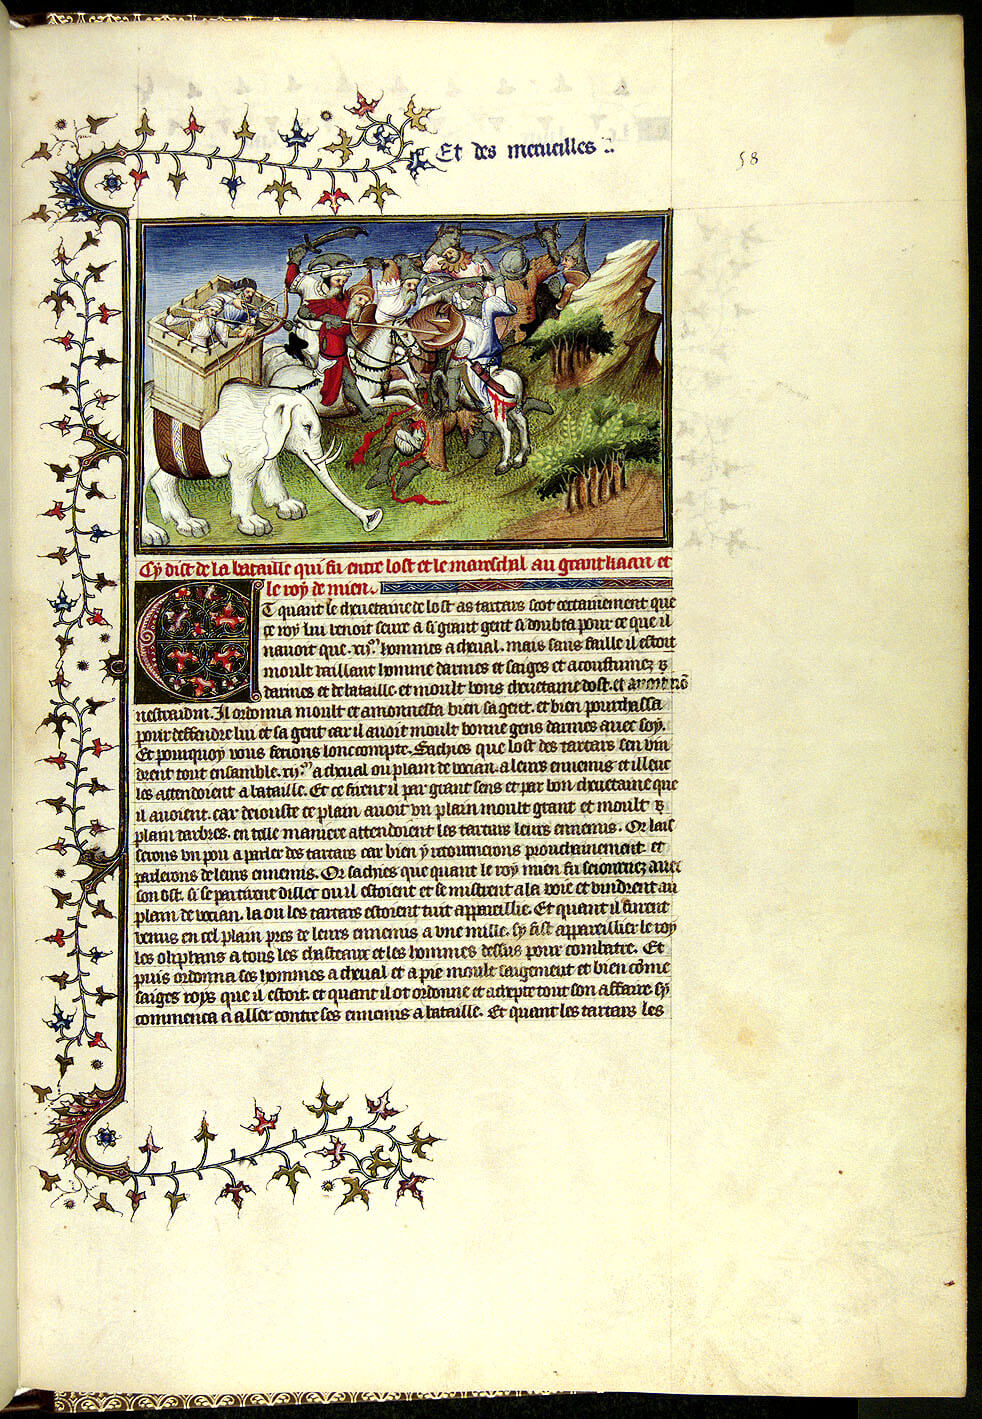 Et des merueilles
58
Cy dist de la bataille qui fu entre lost et le mareschal au grant kaan et
le roy de mien.
Et quant le cheuetaine de lost as tartars scot certainement que
ce roy lui venoit seure a si grant gent si doubta pour ce que il
nauoit que .xij.m hommes a cheual. mais sans faille il estoit
moult vaillant homme darmes et saiges et acoustumez
darmes et de bataille. et moult bons cheuetaine dost. et
Il ordonna moult et amonnesta bien sa gent. et bien pourchassa
pour deffendre lui et sa gent car il auoit moult bonne gens darmes auec soy.
Et pourquoy vous feroions lonc compte. Sachies que lost des tartars sen vin
drent tout ensamble .xij.m a cheual ou plain de vocian. a leurs ennemis et illeuc
les attendoient a bataille. Et ce firent il par grant sens et par bon cheuetaine que
il auoient. car deiouste ce plain auoit vn plain moult grant et moult
plain darbres. en telle maniere attendoient les tartars leurs ennemis. Or lais
serons vn pou a parler des tartars car bien y retournerons prouchainement et
parlerons de leurs ennemis. Or sachies que quant le roy mien fu seiournez auec
son ost. si se partirent dillec ou il estoient et se mistrent a la voie et vindrent au
plain de vocian. la ou les tartars estoient tuit appareillie. Et quant il furent
venus en cel plain pres de leurs ennemis a vne mille. sy fist appareillier le roy
les oliphans a tous les chasteaux et les hommes dessus pour combatre. Et
puis ordonna ses hommes a cheual et a pie moult saigement et bien come
saiges roys que il estoit. et quant il ot ordonne et tout son affaire. sy
commenca a aller contre ses ennemis a bataille. Et quant les tartars les